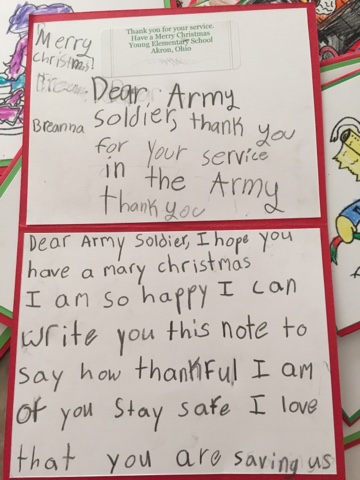 Thank you for your service.
Have a Merry Christmas
Young Elementary School
Akron, Ohio
Merry
christmas!
Breanna
Dear, Army
soldier, thank you
for your service
in the Army
thank you
Dear Army Soldier, I hope you
have a mary christmas
I am so happy I can
write you this note to
say how thankful I am
of you Stay safe I love
that you are saving us